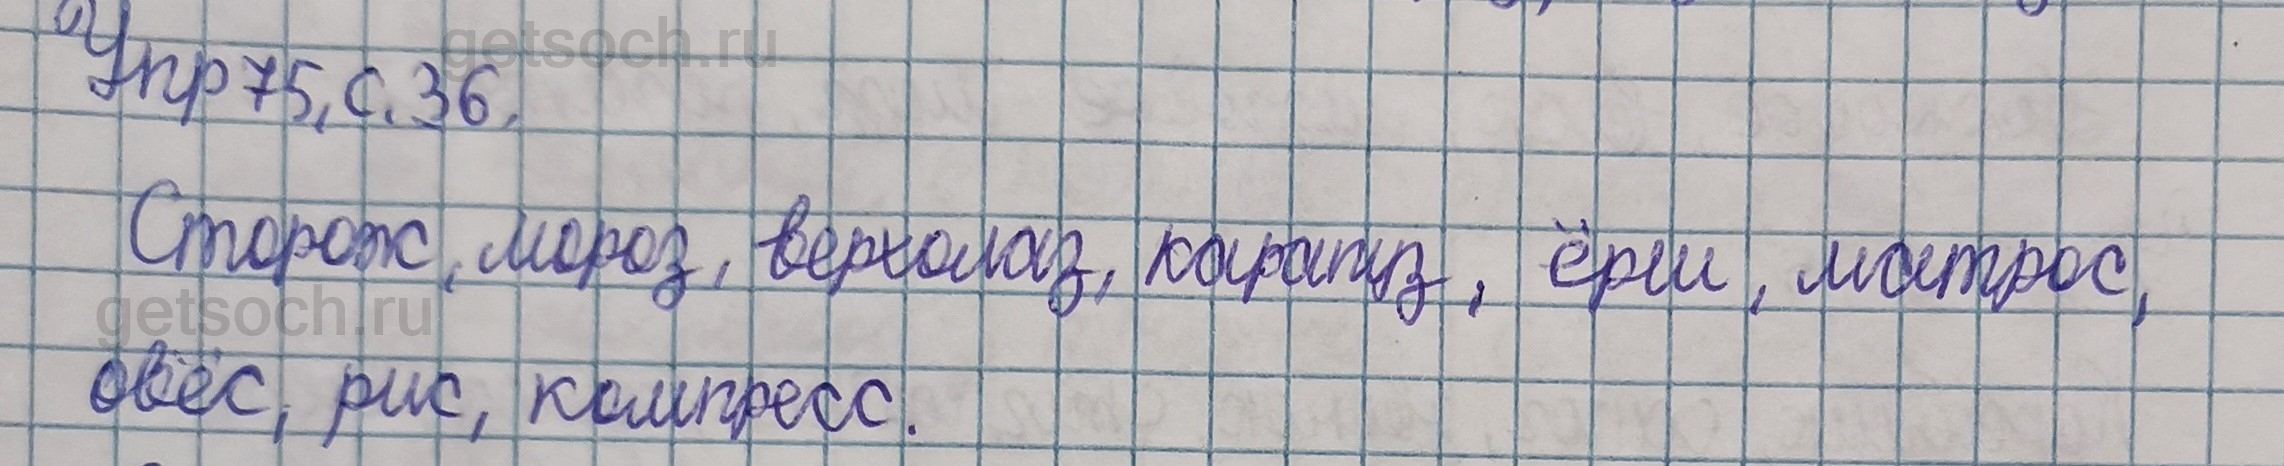 getsoch.ru
Упр 75, с. 36.
Сторож, мороз, верхолаз, карапуз, ёрш, матрос,
getsoch.ru
овёс, рис, компресс.